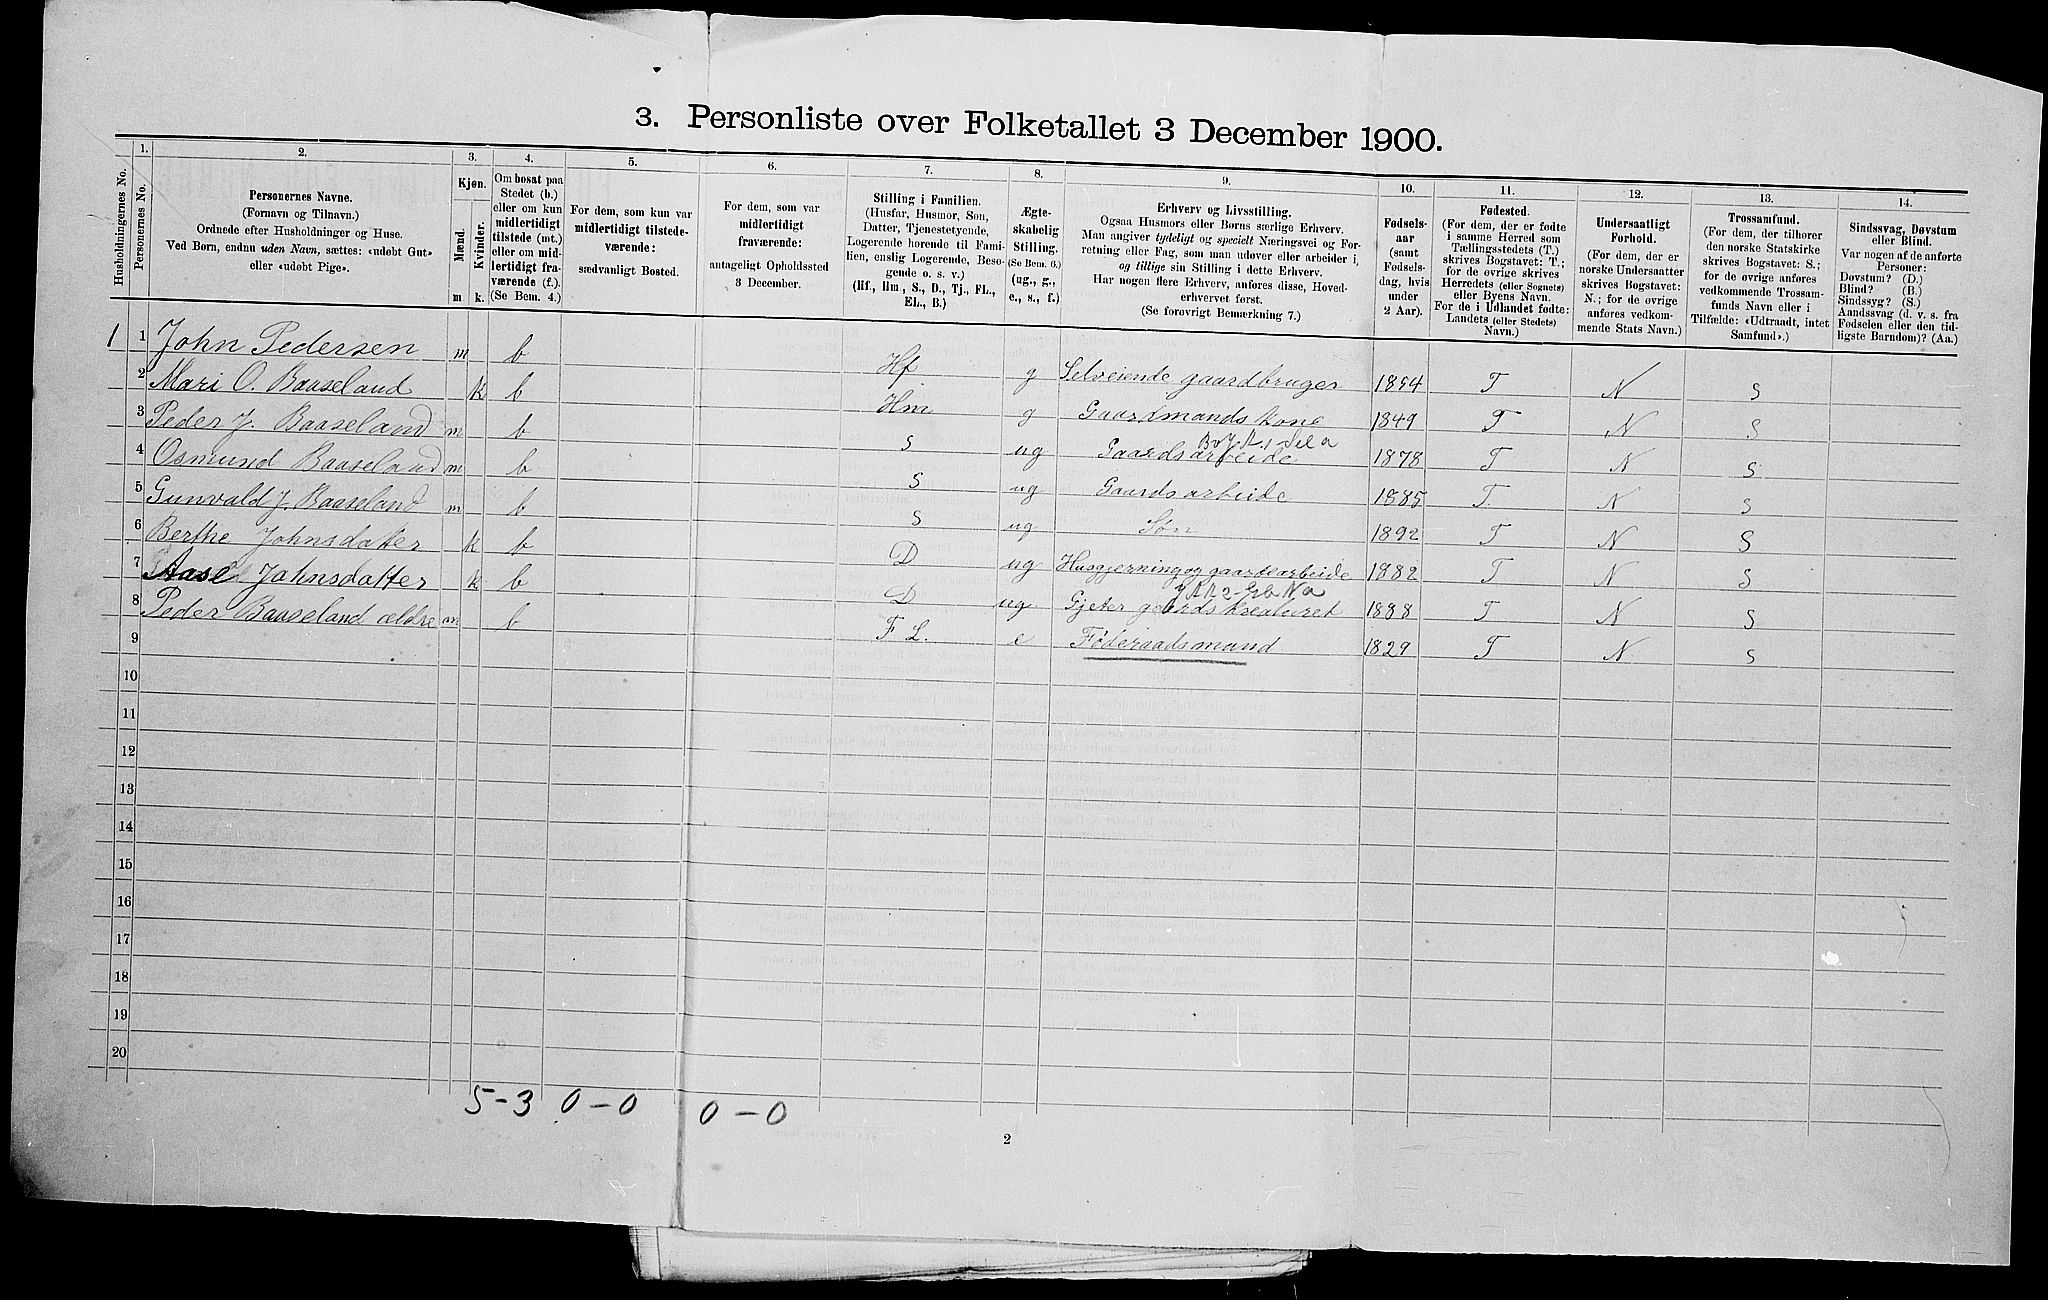 3. Personliste over Folketallet 3 December 1900.
1. 2. 3. 4. 5. 6. 7. 8. 9. 10. 11. 12. 13. 14.
Husholdningernes No.
Personernes No.
Personernes Navne.
(Fornavn og Tilnavn.)
Ordnede efter Husholdninger og Huse.
Ved Børn, endnu uden Navn, sættes: «udøbt Gut»
eller «udøbt Pige».
Kjøn.
Mænd.
Kvinder.
m k.
Om bosat paa
Stedet (b.)
eller om kun
midlertidigt
tilstede (mt.)
eller om mid-
lertidigt fra-
værende (f.)
(Se Bem. 4.)
For dem, som kun var
midlertidigt tilstede-
værende:
sædvanligt Bosted.
For dem, som var
midlertidigt
fraværende:
antageligt Opholdssted
3 December.
Stilling i Familien.
(Husfar, Husmor, Søn,
Datter, Tjenestetyende,
Logerende hørende til Fami-
lien, enslig Logerende, Besø-
gende o. s. v.)
(Hf., Hm., S., D., Tj., FL.,
EL., B.)
Ægte-
skabelig
Stilling.
(Se Bem. 6.)
(ug., g.,
e., s., f.)
Erhverv og Livsstilling.
Ogsaa Husmors eller Børns særlige Erhverv.
Man angiver tydeligt og specielt Næringsvei og For-
retning eller Fag, som man udøver eller arbeider i,
og tillige sin Stilling i dette Erhverv.
Har nogen flere Erhverv, anføres disse, Hoved-
erhvervet først.
(Se forøvrigt Bemærkning 7.)
Fødsels-
aar
(samt
Fødsels-
dag, hvis
under
2 Aar).
Fødested.
(For dem, der er fødte
i samme Herred som
Tællingsstedets (T.)
skrives Bogstavet: T.;
for de øvrige skrives
Herredets (eller Sognets)
eller Byens Navn.
For de i Udlandet fødte:
Landets (eller Stedets)
Navn.)
Undersaatligt
Forhold.
(For dem, der er
norske Undersaatter
skrives Bogstavet:
N.; for de øvrige
anføres vedkom-
mende Stats Navn.)
Trossamfund.
(For dem, der tilhører
den norske Statskirke
skrives Bogstavet: S.;
for de øvrige anføres
vedkommende Trossam-
funds Navn eller i
Tilfælde: «Udtraadt, intet
Samfund».)
Sindssvag, Døvstum
eller Blind.
Var nogen af de anførte
Personer:
Døvstum? (D.)
Blind? (B.)
Sindssyg? (S.)
Aandssvag (d. v. s. fra
Fødselen eller den tid-
ligste Barndom)? (Aa.)
1 1 John Pedersen m b Hf g Selveiende gaardbruger 1854 T N S
2 Mari O. Baaseland k b Hm g Gaardmands kone 1849 T N S
3 Peder J. Baaseland m b S ug Gaardsarbeide 1878 T N S
4 Osmund Baaseland m b S ug Gaardsarbeide 1885 T. N S
5 Gunvald J. Baaseland m b S ug Søn 1892 T N S
6 Berthe Johnsdatter k b D ug Husgjerning og gaardsarbeide 1882 T N S
7 Aase Johnsdatter k b D ug Gjeter gaards kreaturet 1888 T N S
8 Peder Baaseland ældre m b F L. e Føderaadsmand 1829 T N S
9
10
11
12
13
14
15
16
17
18
19
20
5-3 0-0 0-0
2